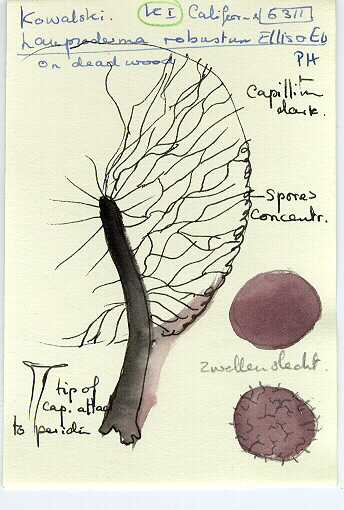 Kowalski. LE I Californ 6311
Lamproderma robustum Ellis & Ev
on dead wood PH
Capillitm
dark.
Spores
Concentr.
Zwellen slecht.
tip of
cap. attac
to peridin